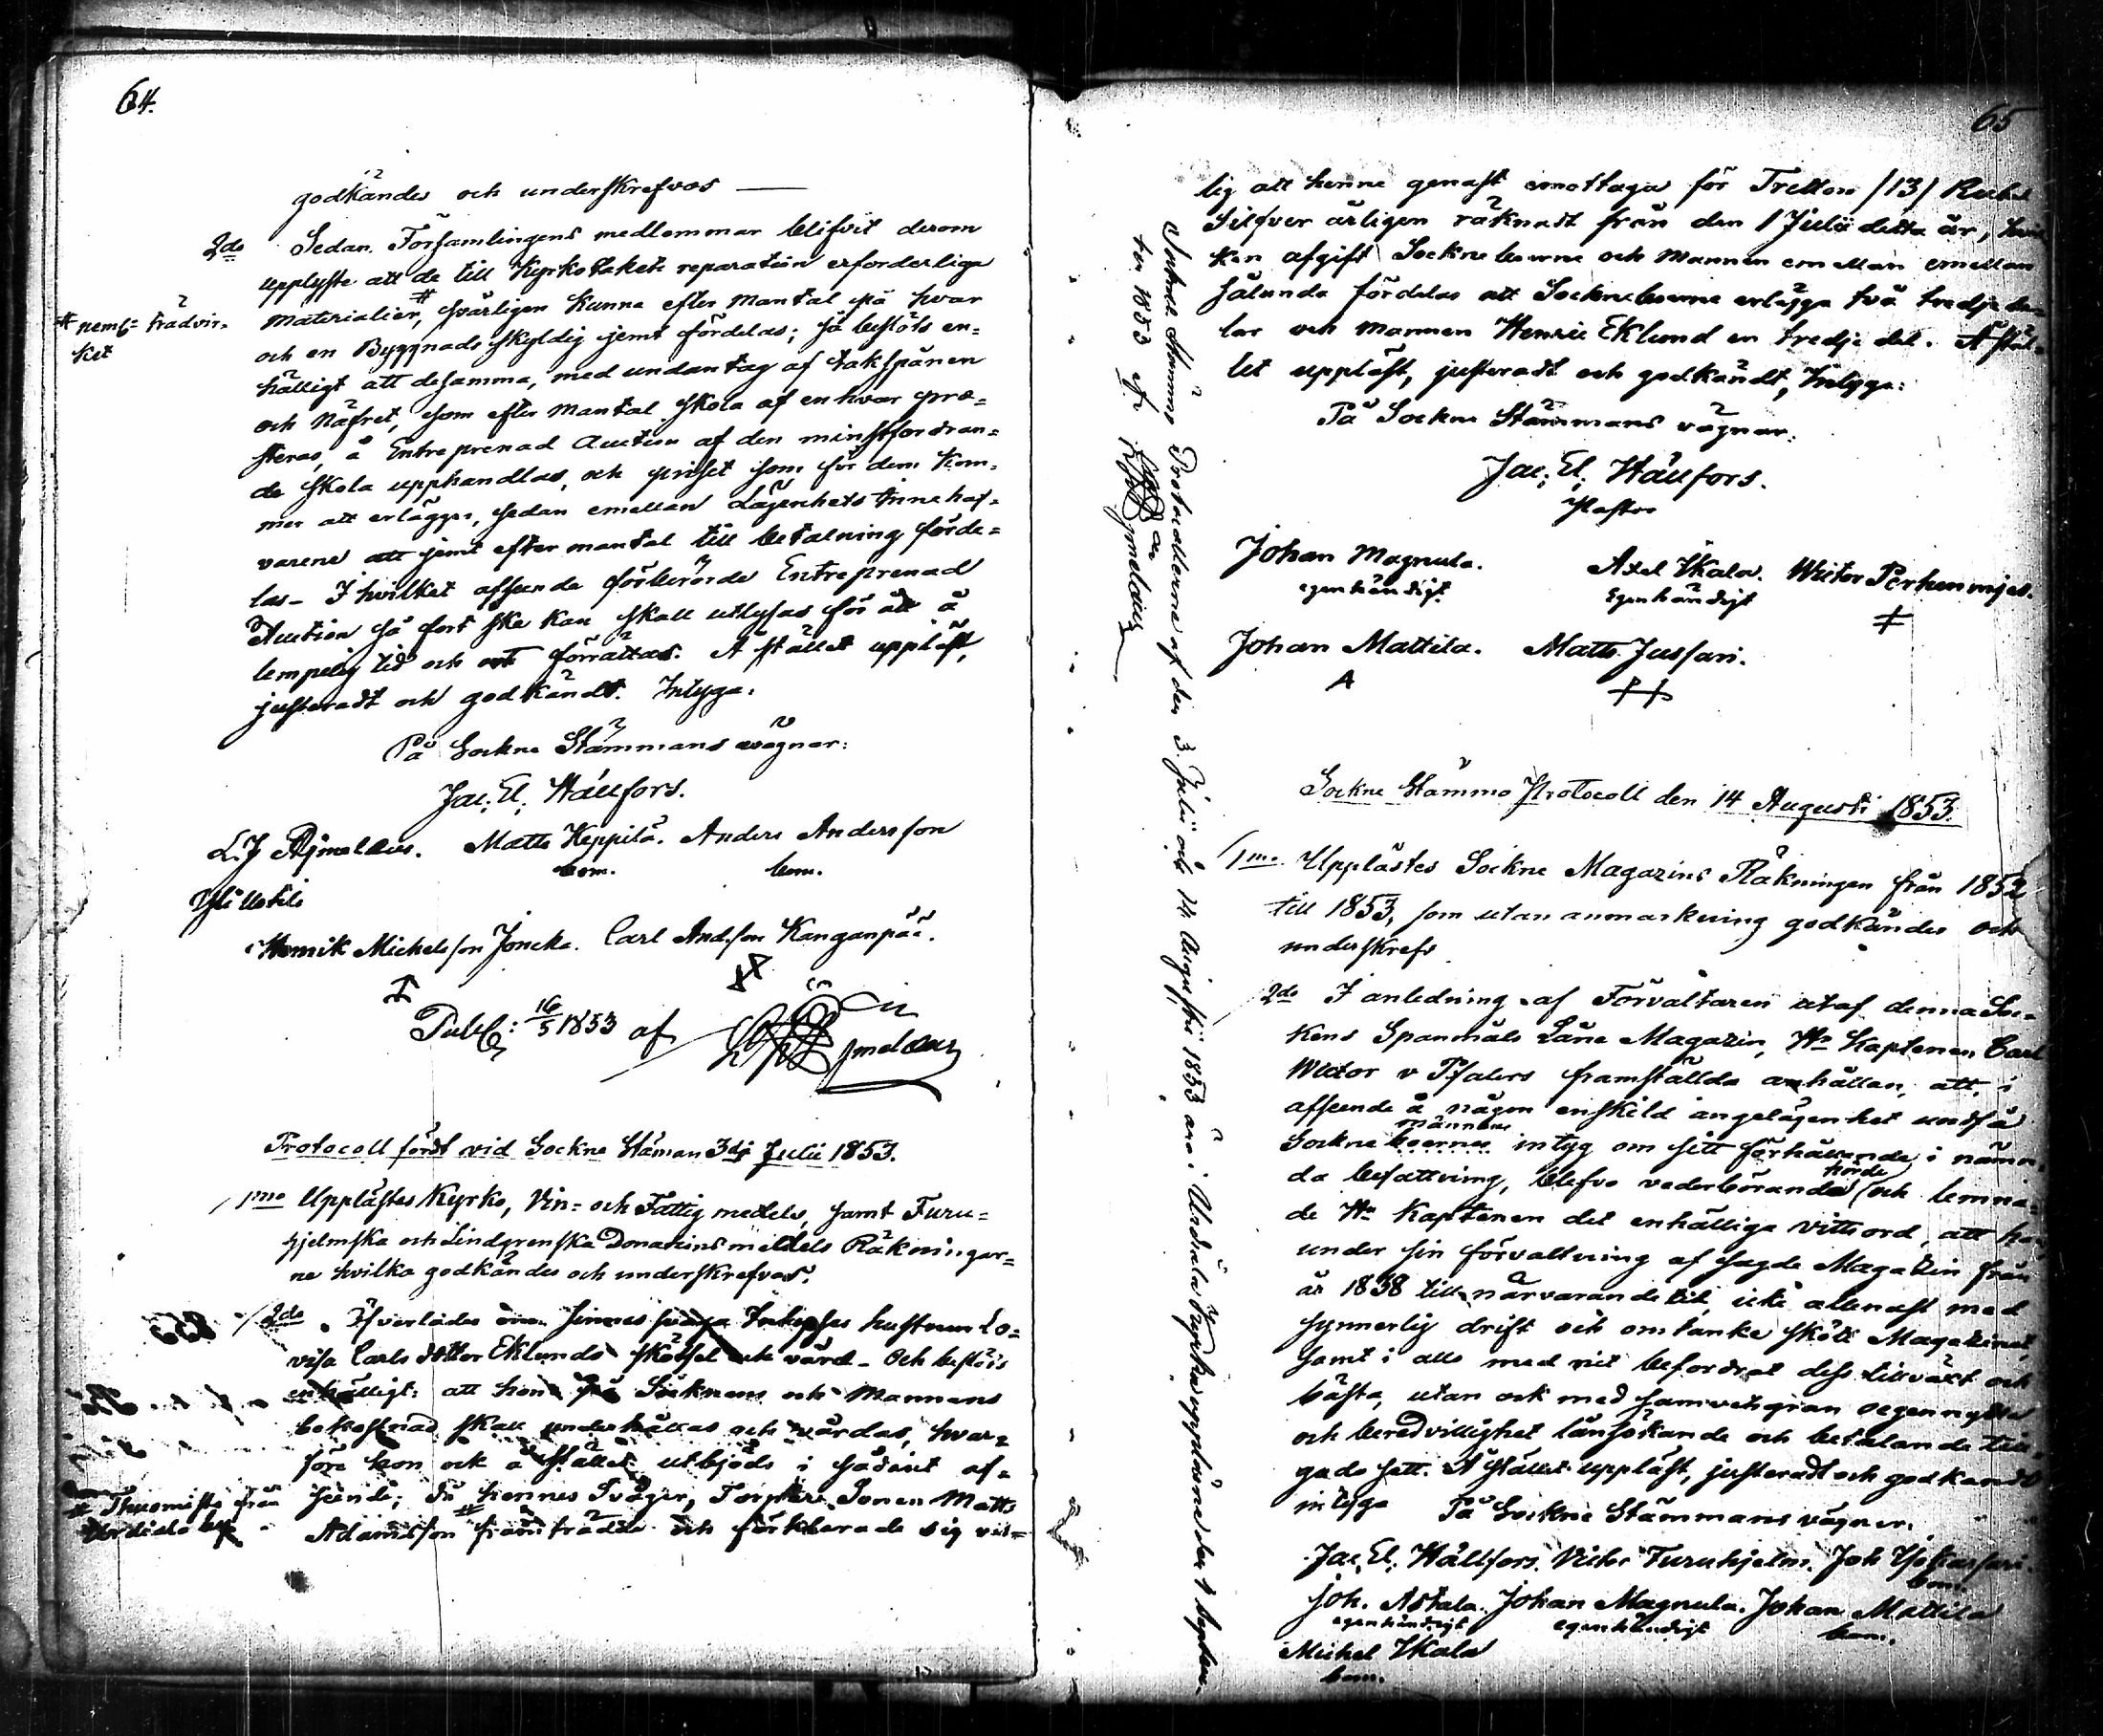 64.
godkändes och underskrefvos —
2do Sedan Församlingens medlemmar blifvit derom
upplyste att de till Kyrkotakets reparation erforderliga
materialier, # svårligen kunna efter mantal på hvar
# neml: trädvir-
ket
och en Byggnads skyldig jemt fördelas; så beslöts en-
hälligt att desamma, med undantag af takspånen
och Näfret, som efter mantal skola af en hvar præ-
steras, å Entreprenad Auction af den minstfordran-
de skola upphandlas, och priset som för dem kom-
mer att erläggas, sedan emellan Lägenhets Innehaf-
varene att jemt efter mantal till betalning förde-
las - I hvilket afseende förberörde Entreprenad
Auction så fort ske kan skall utlysas för att å
lempelig tid och ort förrättas. Å stället uppläst,
justeradt och godkändt. Intyga:
På Sockne Stämmans vägnar:
Jac: El: Hällfors.
L.J Ajmelæus. Matts Heppilä. Anders Andersson
bom. bom.
Ylistili
Henrik Michelsson Joncka. Carl Andsson Kanganpää.
Publ: 16/5 1853 af
Ajmelæus
Protocoll fördt vid Sockne Stäman 3dj Julii 1853.
1mo Upplästes Kyrko, Vin- och Fattig medels, samt Furu-
hjelmska och Lindgrenska Donations medels Räkningar-
ne hvilka godkändes och underskrefvos.
2do Öfverlades om sinnes svaga Inhyses hustrun Lo-
visa Carls dotter Eklunds skötsel och vård - Och beslöts
enhälligt: att hon på Socknens och Mannens
bekostnad skall underhållas och vårdas, hvar-
före hon ock å stället utbjöds i sådant af-
seende; då hennes Svåger, Torpare Sonen Matts
Adamsson # framträdde och förklarade sig vil-
# Thuomisto från
Urdiala by
65
lig att henne genast emottaga för Tretton /13/ Rubel
Silfver årligen räknadt från den 1 Julii detta år, hvil-
ken afgift Socknebourne och Mannen emellan
sålunda fördelas att Socknebourne erlägga två tredje de-
lar och Mannen Henric Eklund en tredje del. Å stäl-
let uppläst, justeradt och godkändt, Intyga:
På Sockne Stämmans vägnar:
Jac: El: Hällfors.
Pastor
Johan Magnula. Axel Skala. Wictor Perhenmjes.
egenhändigt. Egenhändigt
Johan Mattila. Matts Jussari.
Sockne Stämmo Protocoll den 14 Augusti 1853.
1mo Upplästes Sockne Magazins Räkningen från 1852
till 1853, som utan anmärkning godkändes och
underskrefs
2do I anledning af Förvaltaren utaf denna Soc-
kens Spanmåls Låne Magazin, Hr Kaptenen Carl
Wictor v Pfalers framställda anhållan, att i
afseende å någon enskild angelägenhet undfå
Sockne männens intyg om sitt förhållande i nämn-
da befattning, blefvo vederbörande hörde och lemna-
de Hr Kaptenen det enhälliga vittsord, att han
under sin förvaltning af sagde Magazin från
år 1838 till närvarande tid, icke allenast med
synnerlig drift och omtanke skött Magazinet,
samt i allo med nit befordrat dess tillväxt och
bästa, utan ock med samvetsgran oegennytta
och beredvillighet lånsökande och betalande till-
gads sett. Å stället uppläst, justeradt och godkändt
intyga På Sockne Stämmans vägnar.
Jac: El: Hällfors. Victor Furuhjelm. Joh
bom.
Joh. Astala. Johan Magnula. Johan Mattila
egenhändigt egenhändigt bom.
Michel Skala
bom.
Sockne Stämmo Protocollerne af den 3. Julii och 14 Augusti 1853 äro i Urdiala Kyrka upplästne den 4 Septem-
ber 1853 af Ajmelæus